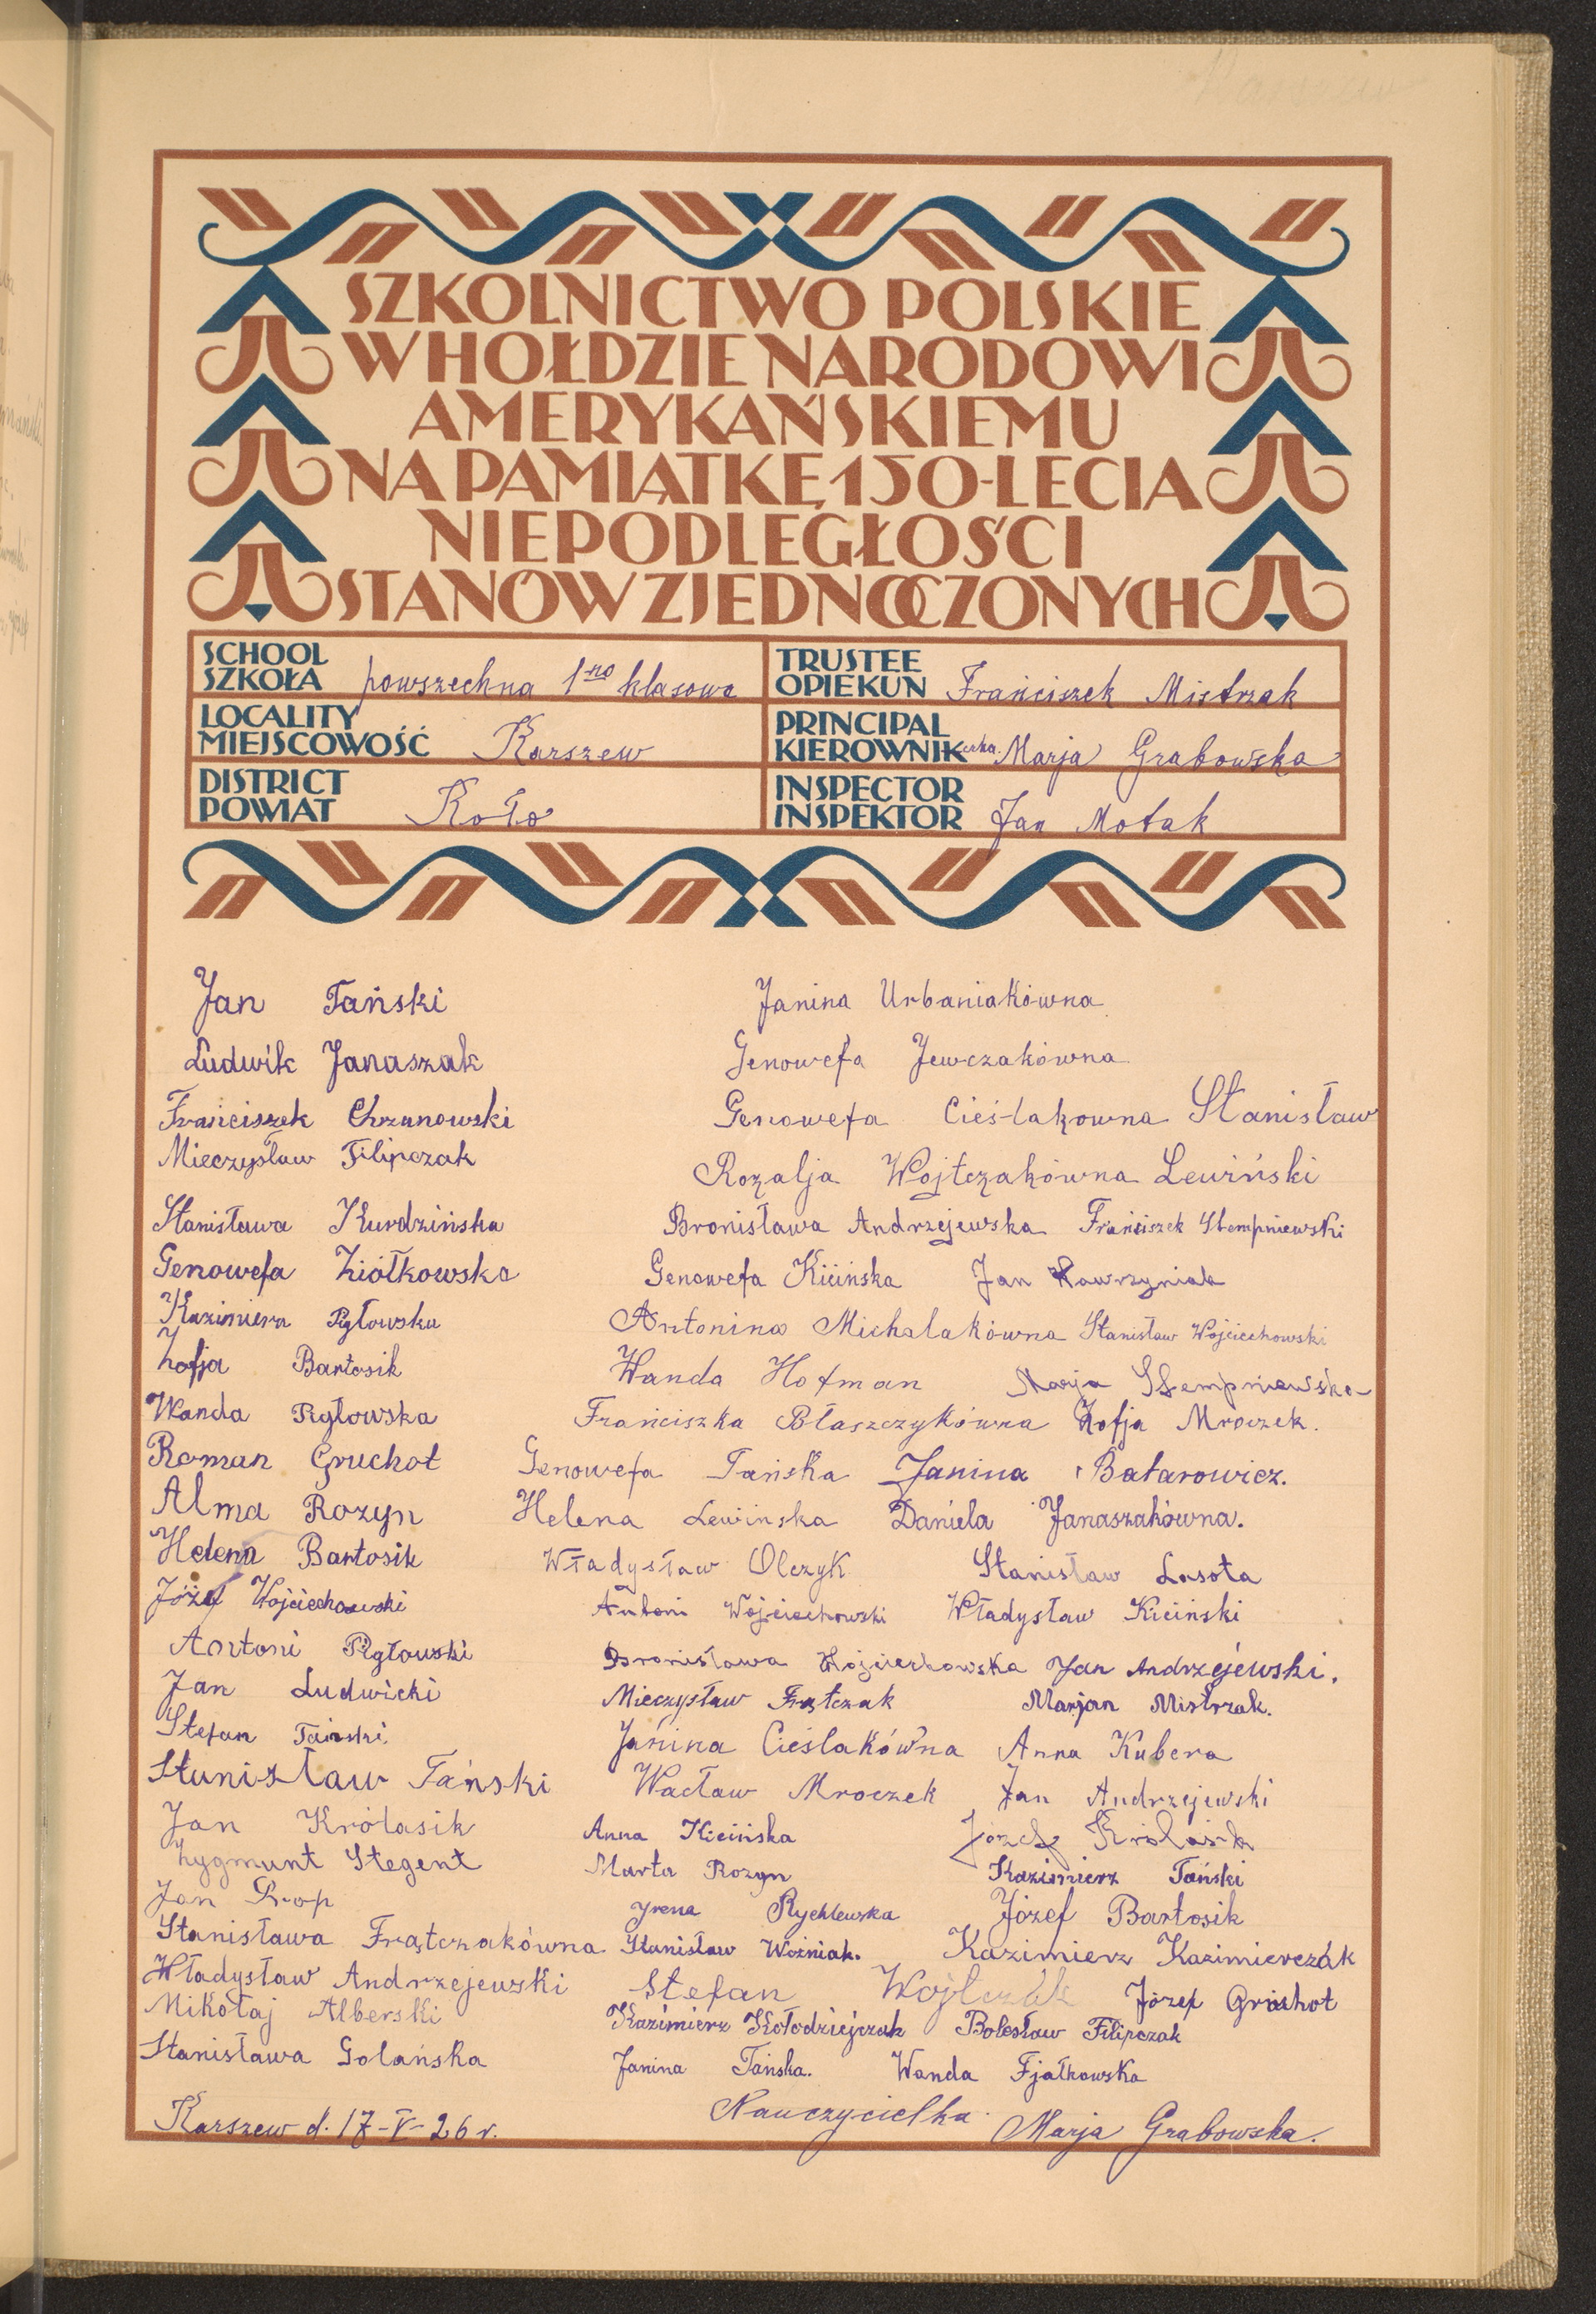 SZKOLNICTWO POLSKIE
W HOŁDZIE NARODOWI
AMERYKAŃSKIEMU
NA PAMIĄTKĘ 150-LECIA
NIEPODLEGŁOŚCI
STANÓW ZJEDNOCZONYCH
SCHOOL
SZKOŁA powszechna 1no klasowa
TRUSTEE
OPIEKUN Franciszek Mistrzak
LOCALITY
MIEJSCOWOŚĆ Karszew
PRINCIPAL
KIEROWNIKczka. Marja Grabowska
DISTRICT
POWIAT Koło
INSPECTOR
INSPEKTOR Jan Motak
Jan Tański Janina Urbaniakówna
Ludwik Janaszak Genowefa Jewczakówna
Franciszek Chrzanowski Genowefa Cieślakowna Stanisław
Mieczysław Filipczak Rozalja Wojtczakówna Lewiński
Stanisława Kurdzińska Bronisława Andrzejewska Franciszek Stempniewski
Genowefa Ziółkowska Genowefa Kicińska Jan Wawrzyniak
Kazimiera Pigłowska Antonina Michalakówna Stanisław Wojciechowski
Zofja Bartosik Wanda Hofman Marja Stempniewska
Wanda Pigłowska Franciszka Błaszczykówna Zofja Mroczek.
Roman Gruchot Genowefa Tańska Janina Batarowicz.
Alma Rozyn Helena Lewinska Daniela Janaszakówna.
Helena Bartosik Władysław Olczyk Stanisław Lasota
Józef Wojciechowski Antoni Wojciechowski Władysław Kiciński
Antoni Pigłowski Bronisława Wojciechowska Jan Andrzejewski.
Jan Ludwicki Mieczysław Frątczak Marjan Mistrzak.
Stefan Tański Janina Cieślakówna Anna Kubera
Stanisław Tański Wacław Mroczek Jan Andrzejewski
Jan Królasik Anna Kicińska Józef Królasik
Zygmunt Stegent Marta Rozyn Kazimierz Tański
Jan Prop Yrena Rychlewska Józef Bartosik
Stanisława Frątczakówna Stanisław Woźniak. Kazimierz Kazimierczak
Władysław Andrzejewski Stefan Wojtczak Józef Gruchot
Mikołaj Alberski Kazimierz Kołodziejczak Bolesław Filipczak
Stanisława Golańska Janina Tańska. Wanda Fjałkowska
Karszew d. 17-V-26 r. Nauczycielka Marja Grabowska.